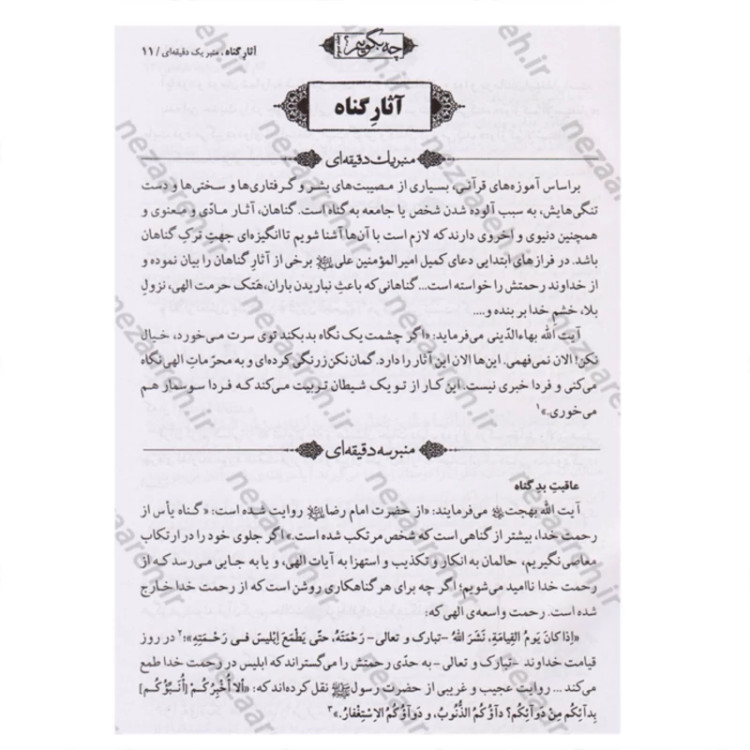 آثارِ گناه، منبر یک دقیقه‌ای / ۱۱
چه بگوییم؟
آثارِ گناه
منبر یک دقیقه‌ای
براساس آموزه‌های قرآنی، بسیاری از مصیبت‌های بشر و گرفتاری‌ها و سختی‌ها و دست
تنگی‌هایش، به سبب آلوده شدن شخص یا جامعه به گناه است. گناهان، آثار مادّی و معنوی و
همچنین دنیوی و اخروی دارند که لازم است با آن‌ها آشنا شویم تا انگیزه‌ای جهتِ ترکِ گناهان
باشد. در فرازهای ابتدایی دعای کمیل امیرالمؤمنین علی برخی از آثارِ گناهان را بیان نموده و
از خداوند رحمتش را خواسته است... گناهانی که باعثِ نباریدن باران، هَتک حرمت الهی، نزولِ
بلا، خشمِ خدا بر بنده و....
آیت الله بهاءالدّینی می‌فرماید: «اگر چشمت یک نگاه بد بکند توی سرت می‌خورد، خیال
نکن! الان نمی‌فهمی. این‌ها الان این آثار را دارد. گمان نکن زرنگی کرده‌ای و به محرّماتِ الهی نگاه
می‌کنی و فردا خبری نیست. این کار از تو یک شیطان تربیت می‌کند که فردا سوسمار هم
می‌خوری.»۱
منبر سه دقیقه‌ای
عاقبتِ بدِ گناه
آیت الله بهجت می‌فرمایند: «از حضرت امام رضا روایت شده است: «گناه یأس از
رحمت خدا، بیشتر از گناهی است که شخص مرتکب شده است.» اگر جلوی خود را در ارتکاب
معاصی نگیریم، حالمان به انکار و تکذیب و استهزا به آیات الهی، و یا به جایی می‌رسد که از
رحمت خدا ناامید می‌شویم؛ اگر چه برای هر گناهکاری روشن است که از رحمت خدا خارج
شده است. رحمت واسعه‌ی الهی که:
«اِذا کانَ یَومُ القِیامَةِ، نَشَرَ اللهُ -تبارک و تعالی- رَحْمَتَهُ، حتّی یَطْمَعَ اِبْلیسَ فی رَحْمَتِهِ»؛۲ در روز
قیامت خداوند -تبارک و تعالی- به حدّی رحمتش را می‌گستراند که ابلیس در رحمت خدا طمع
می‌کند... روایت عجیب و غریبی از حضرت رسول نقل کرده‌اند که: «اَلا اُخْبِرُکُمْ [اُنَبِّؤُکُم]
بِدائِکُم مِنْ دَوائِکُم؟ داؤُکُمُ الذُّنُوبُ، و دَوآؤُکُمُ الاِسْتِغْفارُ.»۳
nezaareh.ir